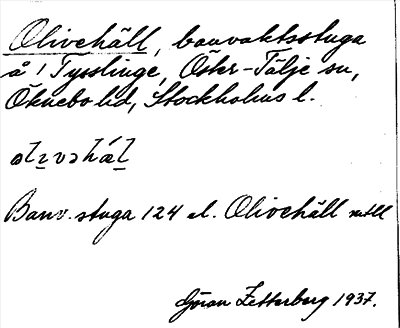 Olivehäll, banvaktsstuga
å 1 Tysslinge, Öster-Tälje sn,
Öknebo hd, Stockholms l.
Banv. stuga 124 el. Olivehäll
Göran Zetterberg 1937.